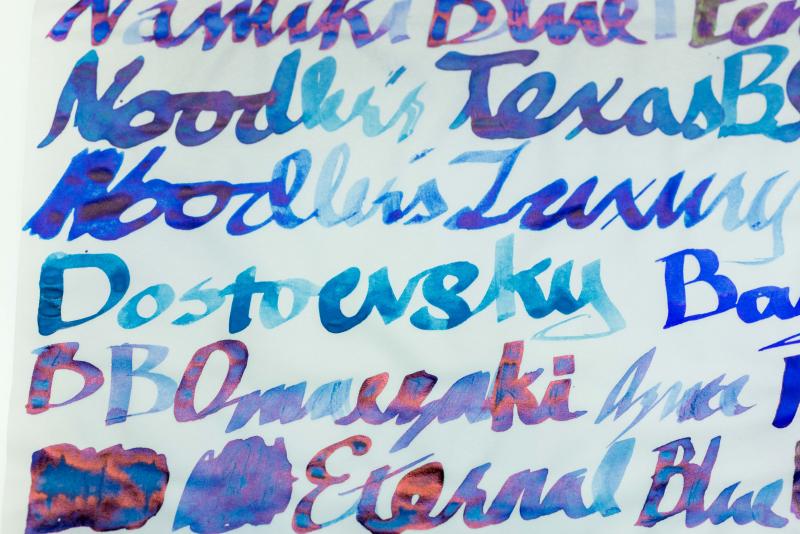 Namiki Blue
Noodler's Texas B
Noodler's Luxury
Dostoevsky Ba
BB Omaezaki
Eternal Blue